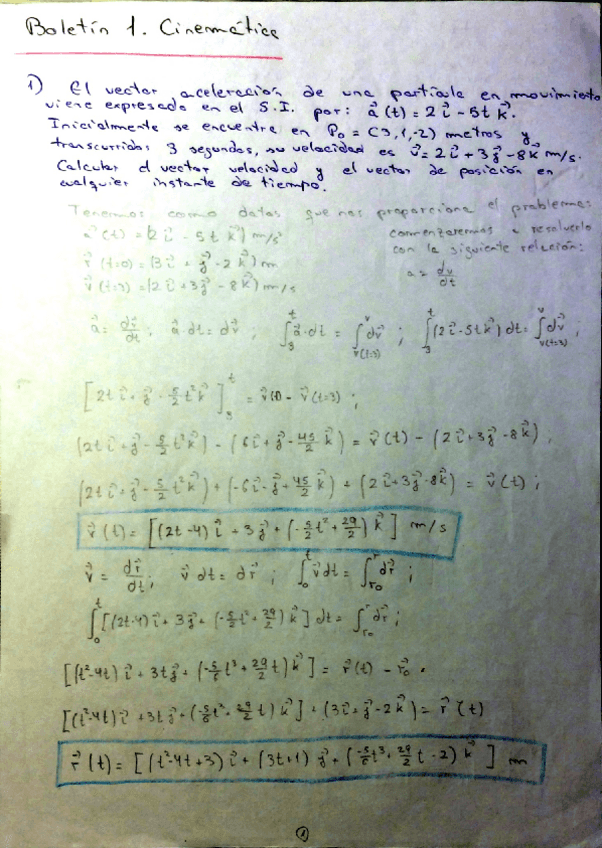 Boletín 1. Cinemática
1) El vector aceleración de una partícula en movimiento
viene expresado en el S.I. por: a⃗(t) = 2 i⃗ - 5t k⃗.
Inicialmente se encuentra en P₀ = (3,1,-2) metros y
transcurridos 3 segundos, su velocidad es v⃗ = 2 i⃗ + 3 j⃗ - 8 k⃗ m/s.
Calcular el vector velocidad y el vector de posición en
cualquier instante de tiempo.
Tenemos como datos que nos proporciona el problema:
a⃗(t) = (2 i⃗ - 5t k⃗) m/s²
r⃗(t=0) = (3 i⃗ + j⃗ - 2 k⃗) m
v⃗(t=3) = (2 i⃗ + 3 j⃗ - 8 k⃗) m/s
comenzaremos a resolverlo
con la siguiente relación:
a = dv/dt
a⃗ = dv⃗/dt ; a⃗·dt = dv⃗ ; ∫₃ᵗ a⃗·dt = ∫_{v(t=3)}^{v} dv⃗ ; ∫₃ᵗ (2 i⃗ - 5t k⃗) dt = ∫_{v(t=3)}^{v} dv⃗ ;
[2t i⃗ + j⃗ - 5/2 t² k⃗]₃ᵗ = v⃗(t) - v⃗(t=3) ;
(2t i⃗ + j⃗ - 5/2 t² k⃗) - (6 i⃗ + j⃗ - 45/2 k⃗) = v⃗(t) - (2 i⃗ + 3 j⃗ - 8 k⃗) ;
(2t i⃗ + j⃗ - 5/2 t² k⃗) + (-6 i⃗ - j⃗ + 45/2 k⃗) + (2 i⃗ + 3 j⃗ - 8 k⃗) = v⃗(t) ;
v⃗(t) = [(2t-4) i⃗ + 3 j⃗ + (-5/2 t² + 29/2) k⃗] m/s
v⃗ = dr⃗/dt ; v⃗ dt = dr⃗ ; ∫₀ᵗ v⃗ dt = ∫_{r₀}^{r} dr⃗ ;
∫₀ᵗ [(2t-4) i⃗ + 3 j⃗ + (-5/2 t² + 29/2) k⃗] dt = ∫_{r₀}^{r} dr⃗ ;
[(t²-4t) i⃗ + 3t j⃗ + (-5/6 t³ + 29/2 t) k⃗] = r⃗(t) - r⃗₀ .
[(t²-4t) i⃗ + 3t j⃗ + (-5/6 t³ + 29/2 t) k⃗] + (3 i⃗ + j⃗ - 2 k⃗) = r⃗(t)
r⃗(t) = [(t²-4t+3) i⃗ + (3t+1) j⃗ + (-5/6 t³ + 29/2 t - 2) k⃗] m
1